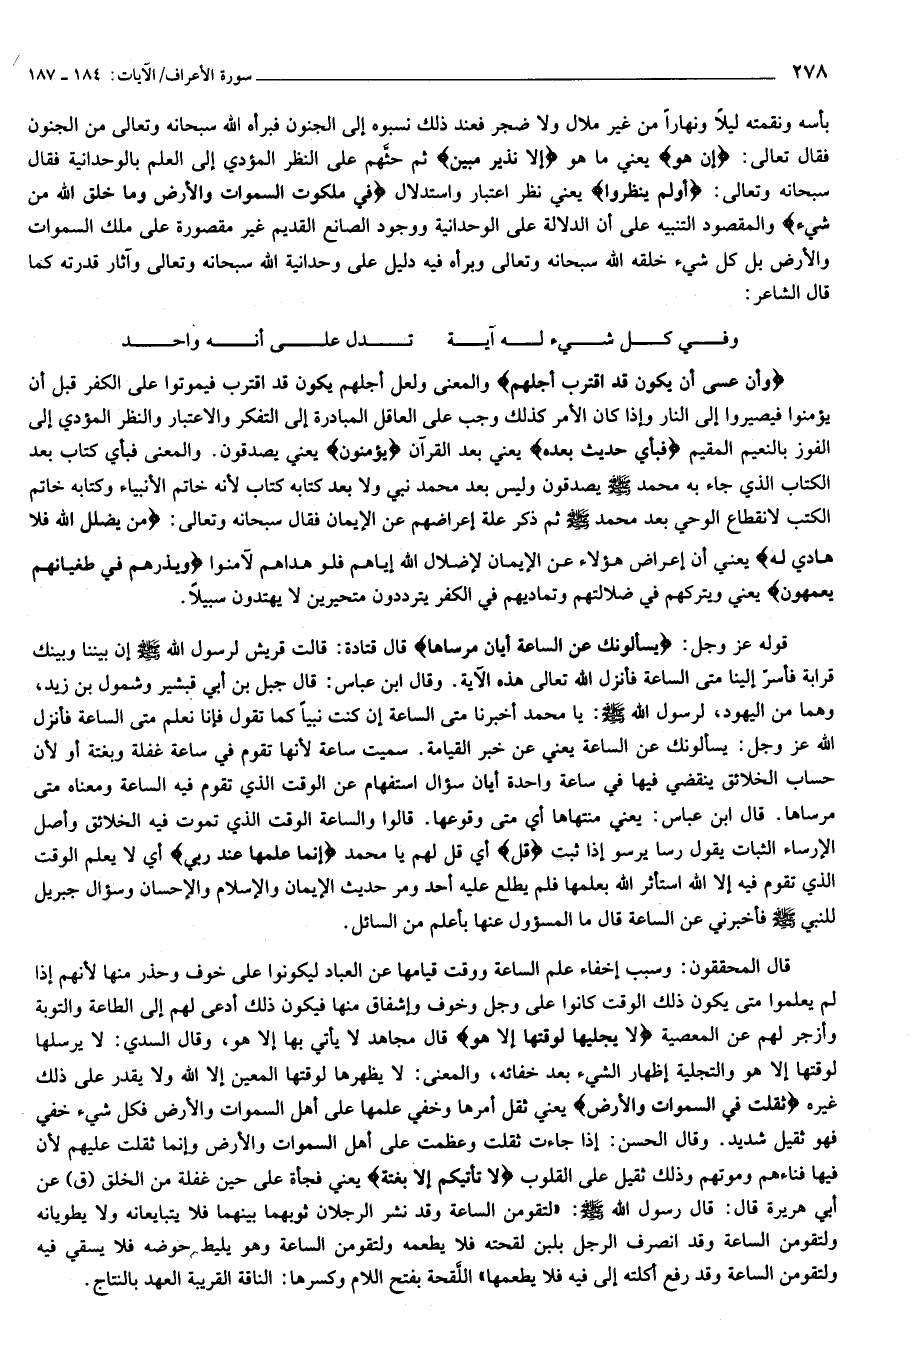 ٢٧٨ ـــــــــ سورة الأعراف/ الآيات: ١٨٤ ـ ١٨٧
بأسه ونقمته ليلاً ونهاراً من غير ملال ولا ضجر فعند ذلك نسبوه إلى الجنون فبرأه الله سبحانه وتعالى من الجنون
فقال تعالى: ﴿إن هو﴾ يعني ما هو ﴿إلا نذير مبين﴾ ثم حثَّهم على النظر المؤدي إلى العلم بالوحدانية فقال
سبحانه وتعالى: ﴿أولم ينظروا﴾ يعني نظر اعتبار واستدلال ﴿في ملكوت السموات والأرض وما خلق الله من
شيء﴾ والمقصود التنبيه على أن الدلالة على الوحدانية ووجود الصانع القديم غير مقصورة على ملك السموات
والأرض بل كل شيء خلقه الله سبحانه وتعالى وبرأه فيه دليل على وحدانية الله سبحانه وتعالى وآثار قدرته كما
قال الشاعر:
وفـي كـل شـيء لـه آيـة تـدل علـى أنـه واحـد
﴿وأن عسى أن يكون قد اقترب أجلهم﴾ والمعنى ولعل أجلهم يكون قد اقترب فيموتوا على الكفر قبل أن
يؤمنوا فيصيروا إلى النار وإذا كان الأمر كذلك وجب على العاقل المبادرة إلى التفكر والاعتبار والنظر المؤدي إلى
الفوز بالنعيم المقيم ﴿فبأي حديث بعده﴾ يعني بعد القرآن ﴿يؤمنون﴾ يعني يصدقون. والمعنى فبأي كتاب بعد
الكتاب الذي جاء به محمد ﷺ يصدقون وليس بعد محمد نبي ولا بعد كتابه كتاب لأنه خاتم الأنبياء وكتابه خاتم
الكتب لانقطاع الوحي بعد محمد ﷺ ثم ذكر علة إعراضهم عن الإيمان فقال سبحانه وتعالى: ﴿من يضلل الله فلا
هادي له﴾ يعني أن إعراض هؤلاء عن الإيمان لإضلال الله إياهم فلو هداهم لآمنوا ﴿ويذرهم في طغيانهم
يعمهون﴾ يعني ويتركهم في ضلالتهم وتماديهم في الكفر يترددون متحيرين لا يهتدون سبيلاً.
قوله عز وجل: ﴿يسألونك عن الساعة أيان مرساها﴾ قال قتادة: قالت قريش لرسول الله ﷺ إن بيننا وبينك
قرابة فأسرّ إلينا متى الساعة فأنزل الله تعالى هذه الآية. وقال ابن عباس: قال جبل بن أبي قبشير وشمول بن زيد،
وهما من اليهود، لرسول الله ﷺ: يا محمد أخبرنا متى الساعة إن كنت نبياً كما تقول فإنا نعلم متى الساعة فأنزل
الله عز وجل: يسألونك عن الساعة يعني عن خبر القيامة. سميت ساعة لأنها تقوم في ساعة غفلة وبغتة أو لأن
حساب الخلائق ينقضي فيها في ساعة واحدة أيان سؤال استفهام عن الوقت الذي تقوم فيه الساعة ومعناه متى
مرساها. قال ابن عباس: يعني منتهاها أي متى وقوعها. قالوا والساعة الوقت الذي تموت فيه الخلائق وأصل
الإرساء الثبات يقول رسا يرسو إذا ثبت ﴿قل﴾ أي قل لهم يا محمد ﴿إنما علمها عند ربي﴾ أي لا يعلم الوقت
الذي تقوم فيه إلا الله استأثر الله بعلمها فلم يطلع عليه أحد ومر حديث الإيمان والإسلام والإحسان وسؤال جبريل
للنبي ﷺ فأخبرني عن الساعة قال ما المسؤول عنها بأعلم من السائل.
قال المحققون: وسبب إخفاء علم الساعة ووقت قيامها عن العباد ليكونوا على خوف وحذر منها لأنهم إذا
لم يعلموا متى يكون ذلك الوقت كانوا على وجل وخوف وإشفاق منها فيكون ذلك أدعى لهم إلى الطاعة والتوبة
وأزجر لهم عن المعصية ﴿لا يجليها لوقتها إلا هو﴾ قال مجاهد لا يأتي بها إلا هو، وقال السدي: لا يرسلها
لوقتها إلا هو والتجلية إظهار الشيء بعد خفائه، والمعنى: لا يظهرها لوقتها المعين إلا الله ولا يقدر على ذلك
غيره ﴿ثقلت في السموات والأرض﴾ يعني ثقل أمرها وخفي علمها على أهل السموات والأرض فكل شيء خفي
فهو ثقيل شديد. وقال الحسن: إذا جاءت ثقلت وعظمت على أهل السموات والأرض وإنما ثقلت عليهم لأن
فيها فناءهم وموتهم وذلك ثقيل على القلوب ﴿لا تأتيكم إلا بغتة﴾ يعني فجأة على حين غفلة من الخلق (ق) عن
أبي هريرة قال: قال رسول الله ﷺ: «لتقومن الساعة وقد نشر الرجلان ثوبهما بينهما فلا يتبايعانه ولا يطويانه
ولتقومن الساعة وقد انصرف الرجل بلبن لقحته فلا يطعمه ولتقومن الساعة وهو يليط حوضه فلا يسقي فيه
ولتقومن الساعة وقد رفع أكلته إلى فيه فلا يطعمها» اللَّقحة بفتح اللام وكسرها: الناقة القريبة العهد بالنتاج.